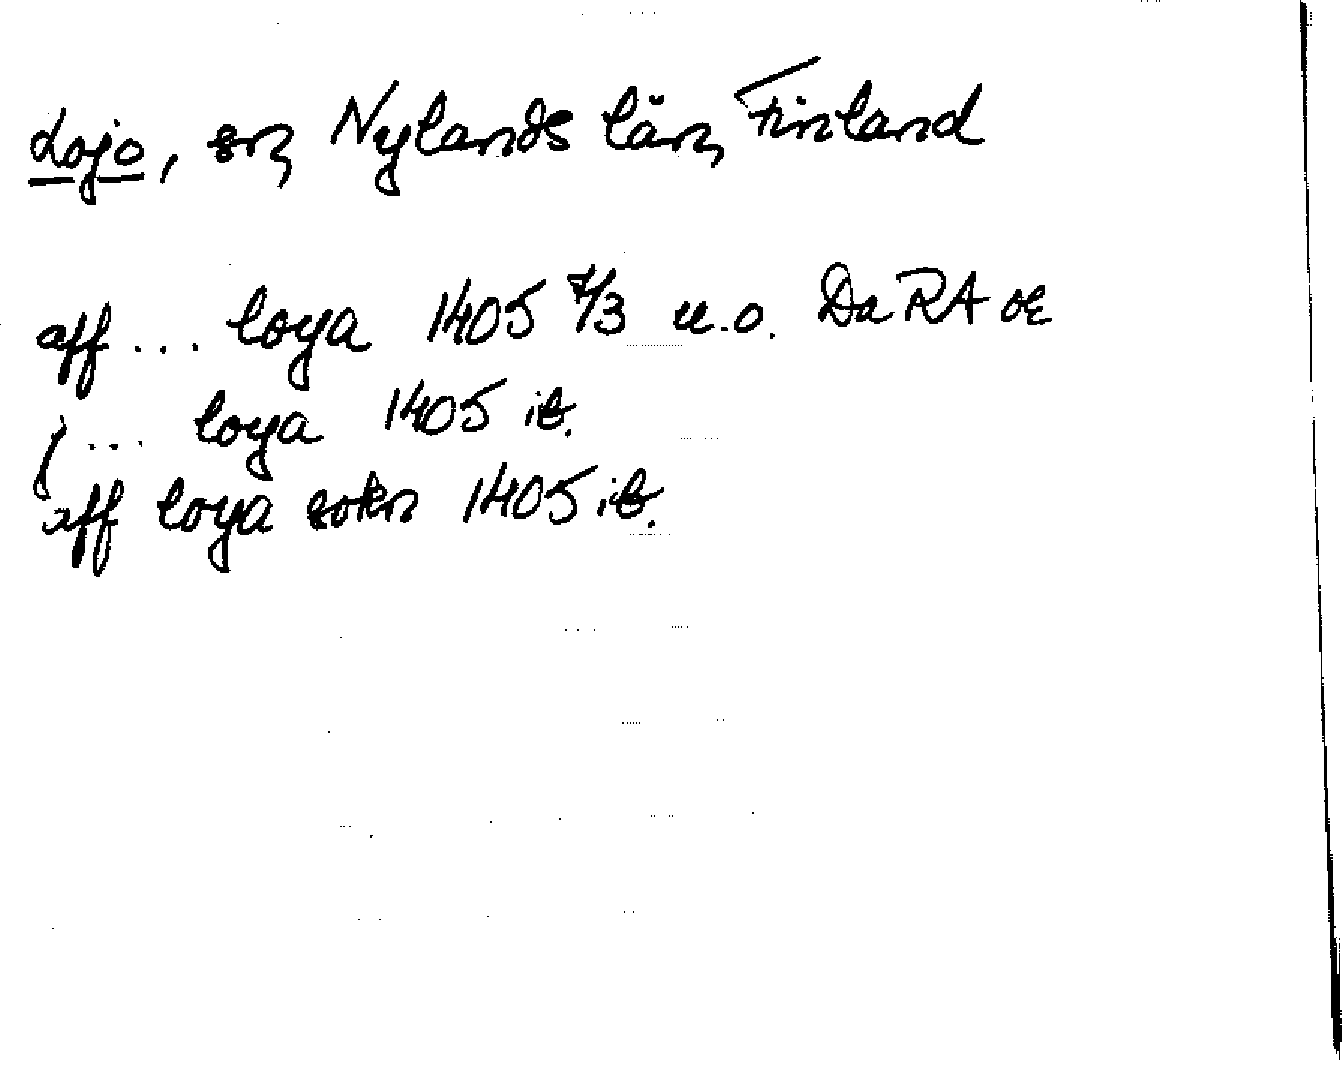 Lojo, sn, Nylands län, Finland
aff ... loya 1405 7/3 u.o. DaRA oe
j ... loya 1405 ib.
aff loya sokn 1405 ib.